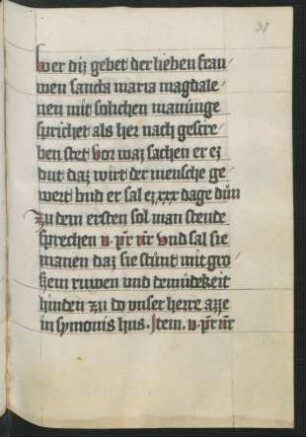 31
Wer diz gebet der lieben frau/
wen sancta maria magdale/
nen mit solichen manunge
sprichet als her nach gescre/
ben stet vor waz sachen er ez
dut daz wirt der mensche ge/
wert vnd er sal ez xxx dage dun
Zu dem ersten sol man stende
sprechen v. pr̄ nr̄ vnd sal sie
manen daz sie stunt mit gro/
ßem ruwen vnd demudekeit
hinden zu do vnser herre azze
in symonis hus. Item. v. pr̄ nr̄